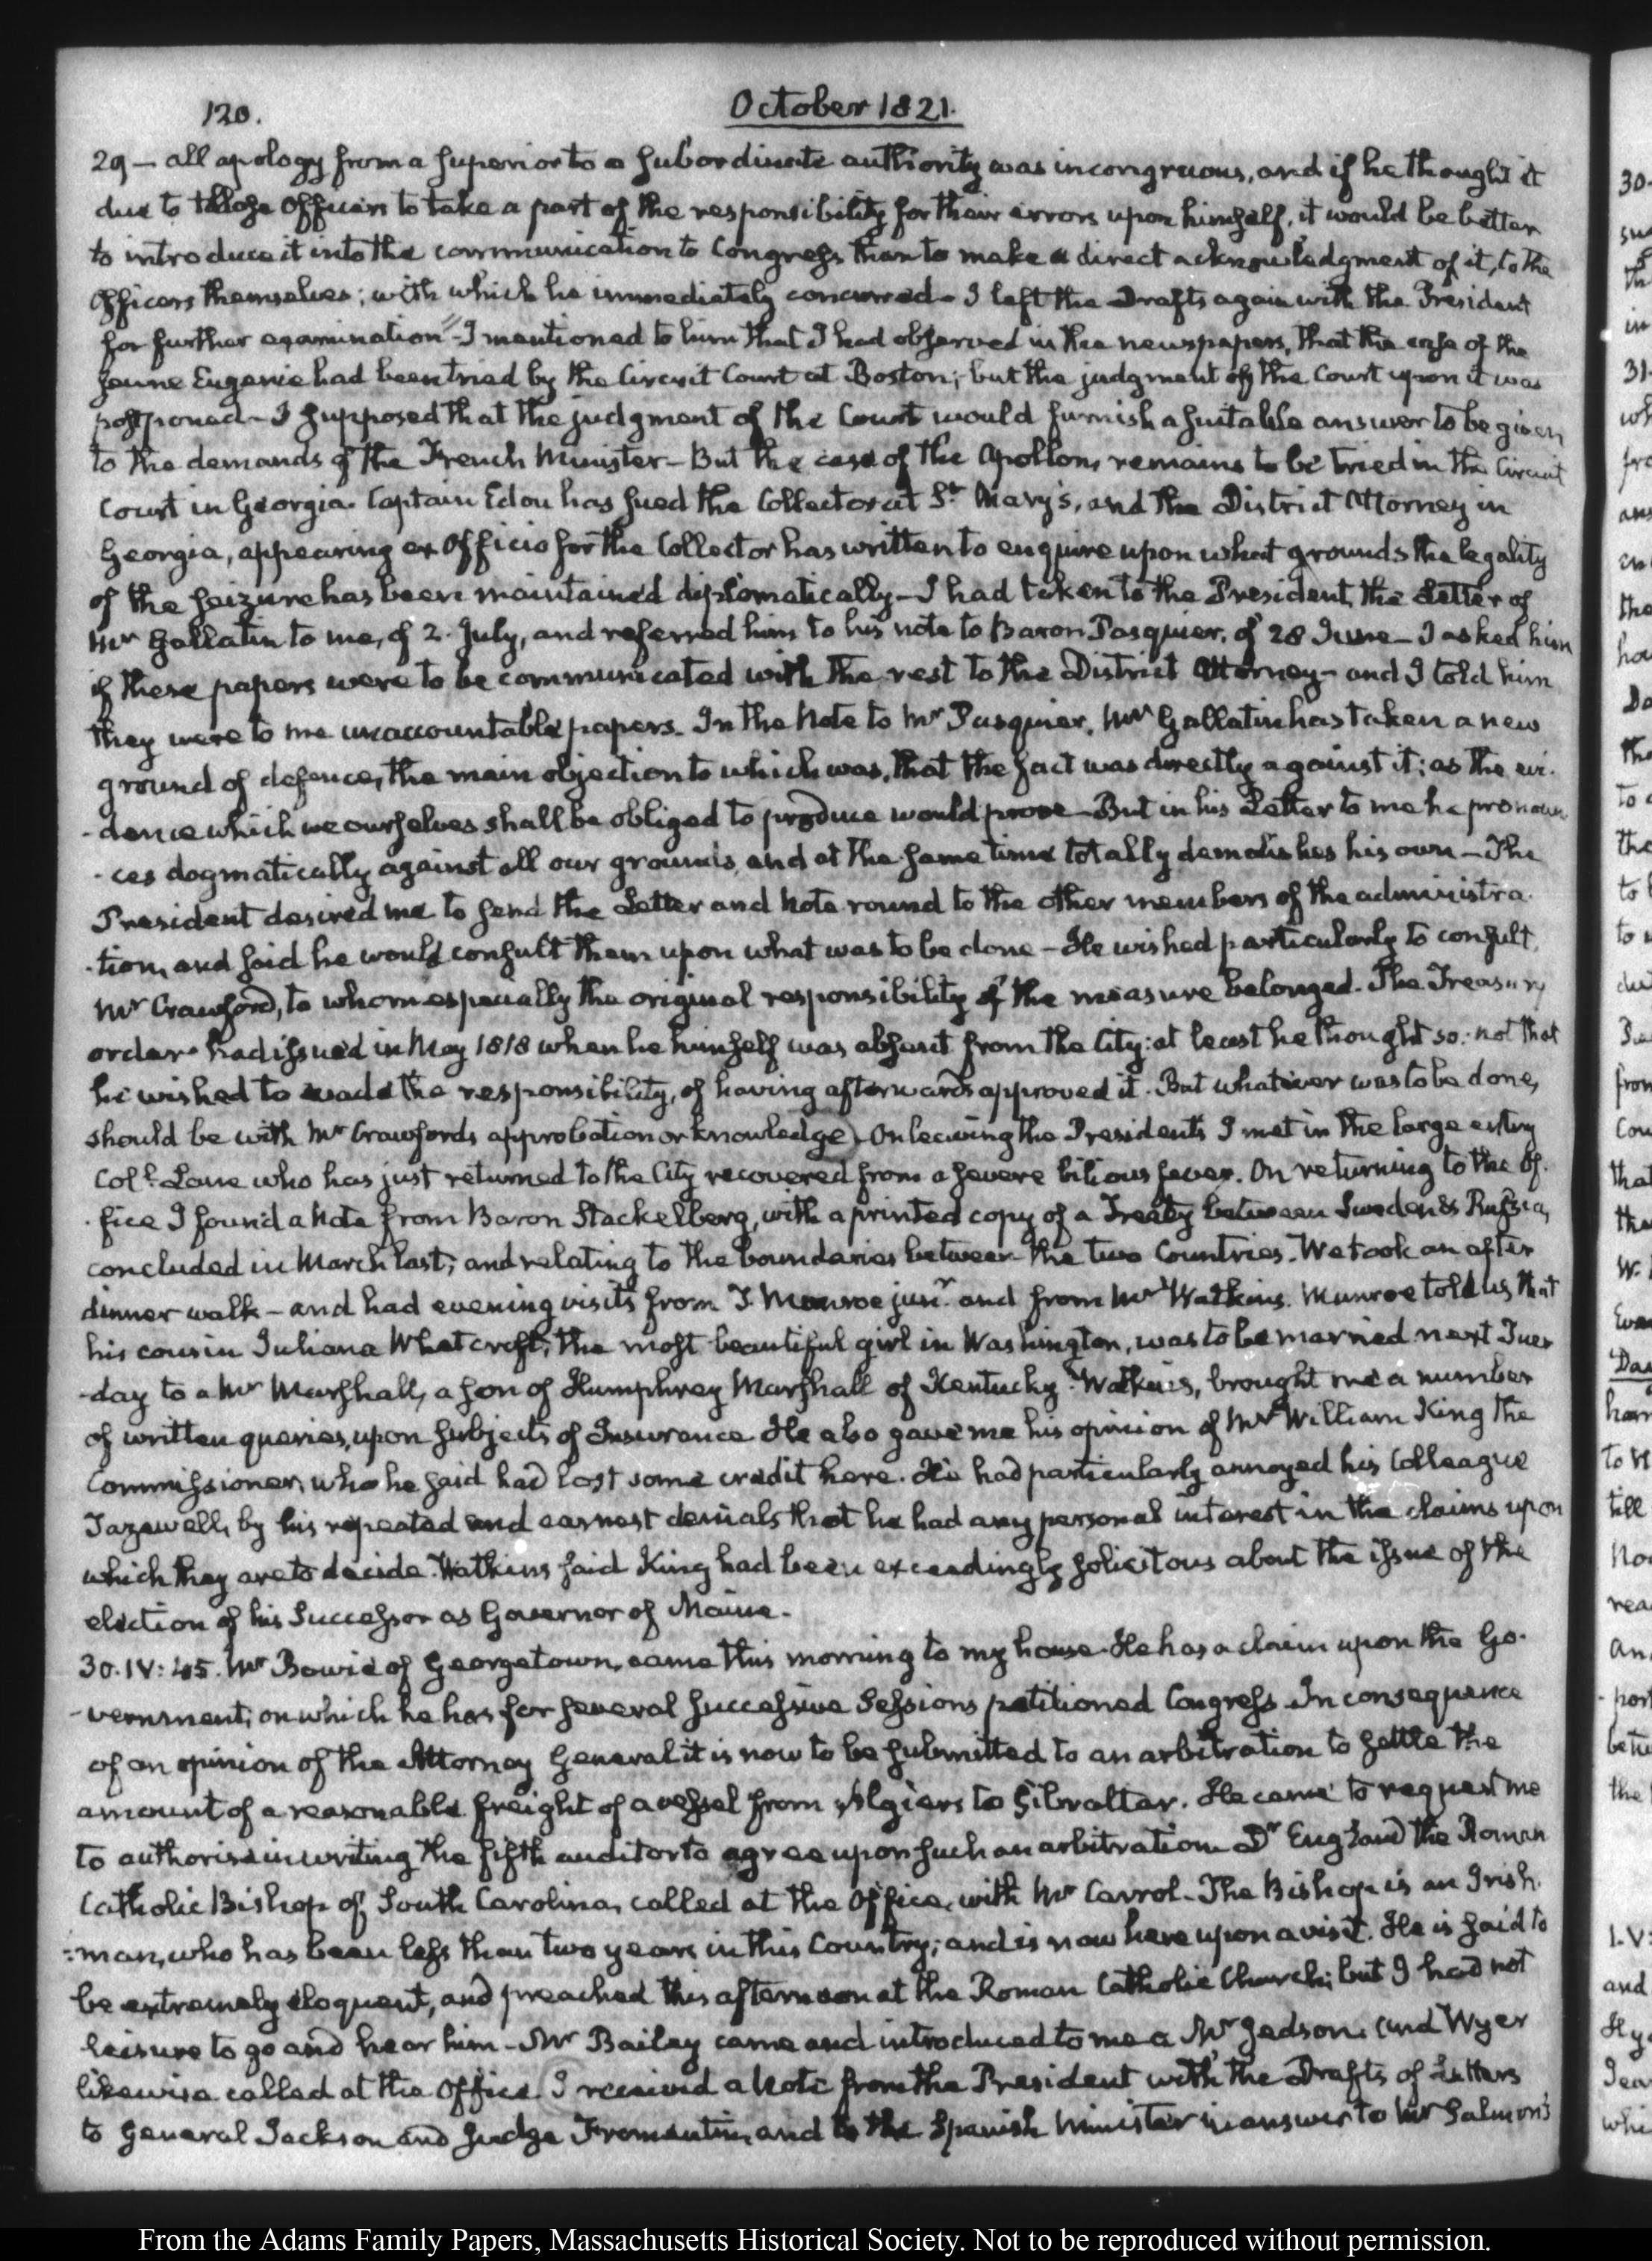 120.
October 1821.
29 — all apology from a superior to a subordinate authority was incongruous, and if he thought it
due to those Officers to take a part of the responsibility for their errors upon himself, it would be better
to introduce it into the communication to Congress than to make a direct acknowledgment of it, to the
Officers themselves; with which he immediately concurred — I left the Drafts again with the President
for further examination — I mentioned to him that I had observed in the newspapers, that the case of the
Jeune Eugenie had been tried by the Circuit Court at Boston; but the judgment of the Court upon it was
postponed — I supposed that the judgment of the Court would furnish a suitable answer to be given
to the demands of the French Minister — But the case of the Apollon, remains to be tried in the Circuit
Court in Georgia. Captain Edou has sued the Collector at St. Mary's, and the District Attorney in
Georgia, appearing ex Officio for the Collector has written to enquire upon what grounds the legality
of the seizure has been maintained diplomatically — I had taken to the President, the Letter of
Mr Gallatin to me, of 2. July, and referred him to his note to Baron Pasquier, of 28 June — I asked him
if these papers were to be communicated with the rest to the District Attorney — and I told him
they were to me unaccountable papers. In the Note to Mr Pasquier, Mr Gallatin has taken a new
ground of defence, the main objection to which was, that the fact was directly against it; as the evi-
-dence which we ourselves shall be obliged to produce would prove — But in his Letter to me he pronoun-
-ces dogmatically against all our grounds, and at the same time totally demolishes his own — The
President desired me to send the Letter and Note round to the other members of the administra-
-tion, and said he would consult them upon what was to be done — He wished particularly to consult
Mr Crawford, to whom especially the original responsibility of the measure belonged. The Treasury
order had issued in May 1818 when he himself was absent from the City: at least he thought so: not that
he wished to evade the responsibility, of having afterwards approved it. But whatever was to be done,
should be with Mr Crawford's approbation or knowledge. On leaving the President's I met in the large entry
Coll. Lane who has just returned to the City recovered from a severe bilious fever. On returning to the Of-
-fice I found a Note from Baron Stackelberg, with a printed copy of a Treaty between Sweden & Russia,
concluded in March last, and relating to the boundaries between the two Countries. We took an after
dinner walk — and had evening visits from J. Monroe junr. and from Mr Watkins. Munroe told us that
his cousin Juliana Whetcroft, the most beautiful girl in Washington, was to be married next Tues-
-day to a Mr Marshall, a son of Humphrey Marshall of Kentucky. Watkins, brought me a number
of written queries, upon subjects of Insurance. He also gave me his opinion of Mr William King the
Commissioner, who he said had lost some credit here. He had particularly annoyed his Colleague
Tazewell, by his repeated and earnest denials that he had any personal interest in the claims upon
which they are to decide. Watkins said King had been exceedingly solicitous about the issue of the
election of his Successor as Governor of Maine.
30. IV: 45. Mr Bowie of Georgetown, came this morning to my house. He has a claim upon the Go-
-vernment, on which he has for several successive Sessions petitioned Congress. In consequence
of an opinion of the Attorney General it is now to be submitted to an arbitration to settle the
amount of a reasonable freight of a vessel from Algiers to Gibraltar. He came to request me
to authorise in writing the fifth auditor to agree upon such an arbitration. Dr England the Roman
Catholic Bishop of South Carolina, called at the Office, with Mr Carrol. The Bishop is an Irish-
-man, who has been less than two years in this Country, and is now here upon a visit. He is said to
be extremely eloquent, and preached this afternoon at the Roman Catholic Church; but I had not
leisure to go and hear him — Mr Bailey came and introduced to me a Mr Jadson, and Wyer
likewise called at the Office. I received a Note from the President with the Drafts of Letters
to General Jackson and Judge Fromentin, and to the Spanish Minister in answer to Mr Salmon's
From the Adams Family Papers, Massachusetts Historical Society. Not to be reproduced without permission.